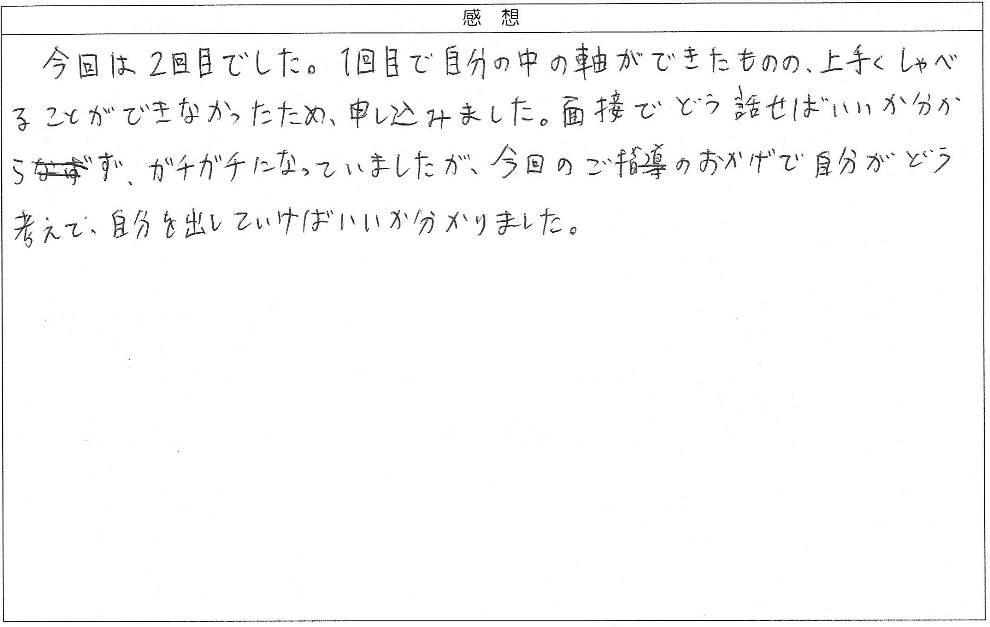 感想
今回は2回目でした。1回目で自分の中の軸ができたものの、上手くしゃべ
ることができなかったため、申し込みました。面接でどう話せばいいか分か
らず、ガチガチになっていましたが、今回のご指導のおかげで自分がどう
考えて、自分を出していけばいいか分かりました。